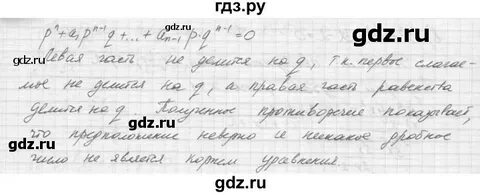 гдз.ру
pⁿ + a₁pⁿ⁻¹q + ... + aₙ₋₁ p·qⁿ⁻¹ = 0
Левая часть не делится на q, т.к. первое слагае-
мое не делится на q, а правая часть равенства
делится на q Полученное противоречие показывает,
что предположение неверно и несократимое дробное
число не является корнем уравнения.
gdz.ru gdz.ru gdz.ru